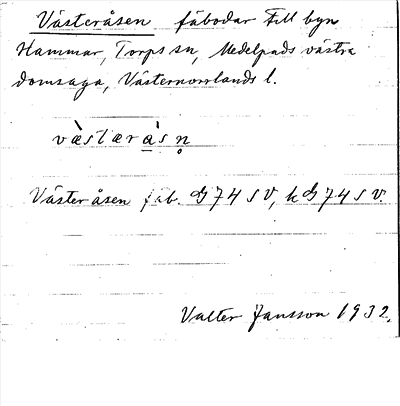 Västeråsen fäbodar till byn
Hammar, Torps sn, Medelpads västra
domsaga, Västernorrlands l.
væ̀stærå̱̀sn̥
Västeråsen fäb. G 74 SV, kG 74 SV.
Valter Jansson 1932.